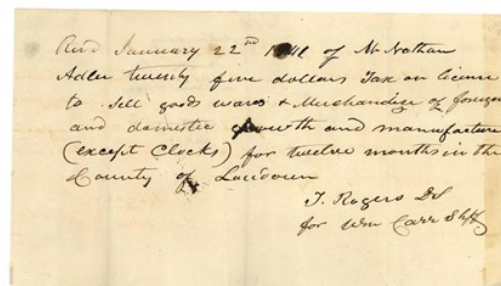 Recd January 22nd 1841 of Mr Nathan
Adler twenty five dollars Tax on license
to sell goods wares & Merchandise of foreign
and domestic growth and manufacture
(except Clocks) for twelve months in the
County of Loudoun
T. Rogers DS
for Wm Carr Shff